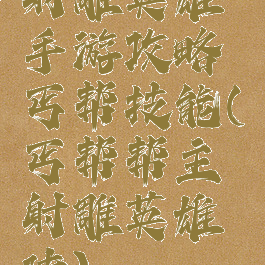 射雕英雄
手游攻略
丐帮技能(
丐帮帮主
射雕英雄